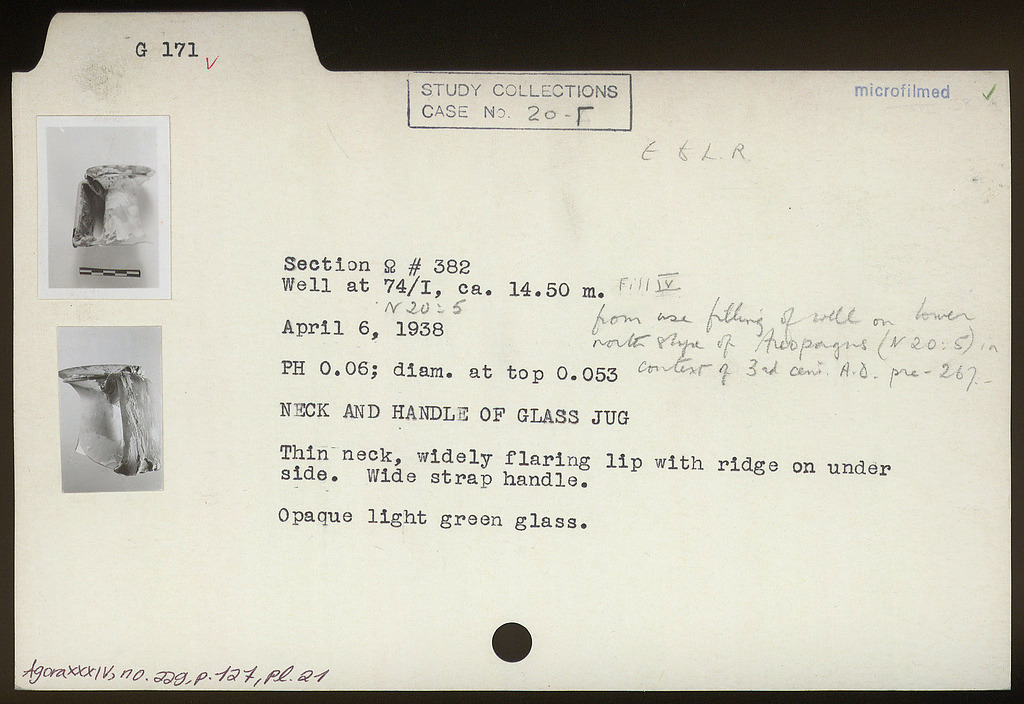 G 171
STUDY COLLECTIONS
CASE No. 20-Γ
microfilmed
E & L. R.
Section Ω # 382
Well at 74/I, ca. 14.50 m. Fill IV
N 20:5
April 6, 1938
from use filling of well on lower
north slope of Areopagus (N 20:5) in
context of 3rd cent. A.D. pre-267.
PH 0.06; diam. at top 0.053
NECK AND HANDLE OF GLASS JUG
Thin neck, widely flaring lip with ridge on under
side. Wide strap handle.
Opaque light green glass.
Agora XXXIV, no. 229, p. 127, pl. 21